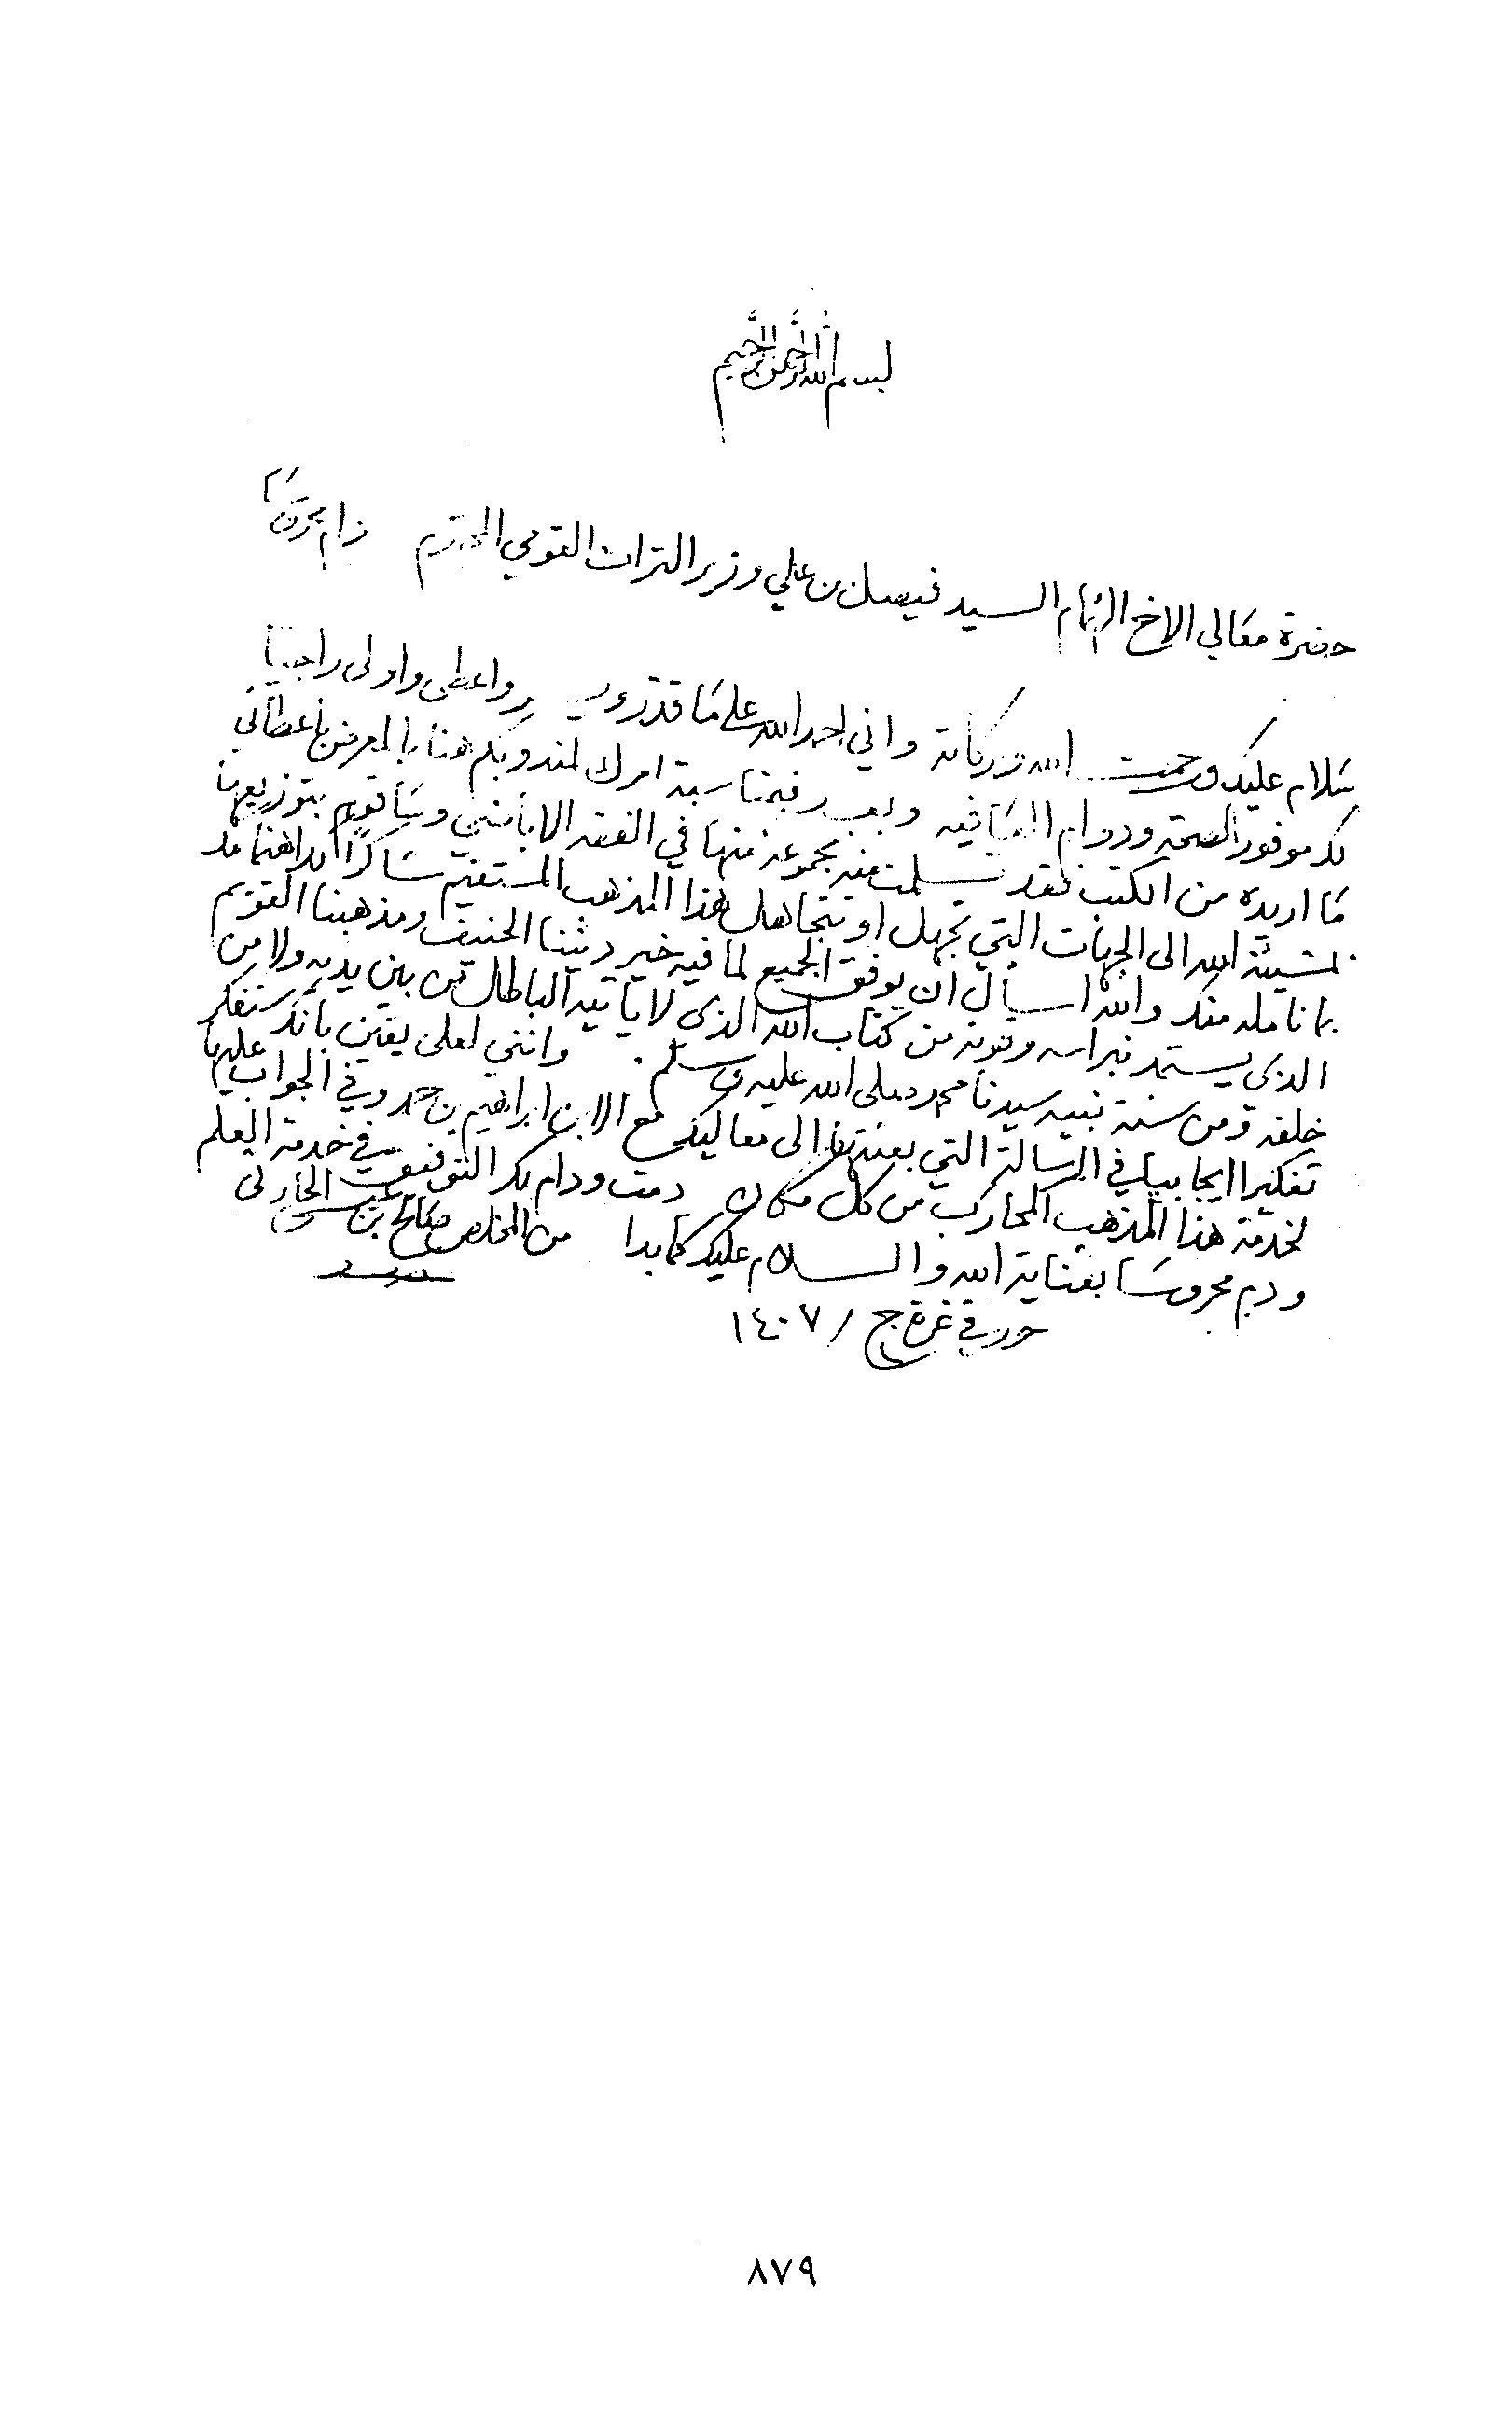 بسم الله الرحمن الرحيم
حضرة معالي الاخ الهمام السيد فيصل بن علي وزير التراث القومي المحترم دام محترما
سلام عليكم ورحمت الله وبركاته واني احمد الله على ما قدر واعطى واولى راجيا
لكم موفور الصحة ودوام العافيه وبعد فبمناسبة امرك لمندوبكم هنا بالمعرض باعطائي
ما اريده من الكتب فقد تسلمت منه مجموعة منها في الفقه الاباضي وساقوم بتوزيعها
بمشيئة الله الى الجهات التي تجهل او تتجاهل هذا المذهب المستقيم شاكرا لكم
بما نامله منكم والله اسأل ان يوفق الجميع لما فيه خير ديننا الحنيف ومذهبنا القويم
الذي يستمد نبراسه وقوته من كتاب الله الذي لا ياتيه الباطل من بين يديه ولا من
خلفه ومن سنة نبيه سيدنا محمد صلى الله عليه وسلم. وانني لعلى يقين بانك ستفكر
تفكيرا ايجابيا في الرسالة التي بعثتها الى معاليكم مع الابن ابراهيم بن حمد وفي الجواب عليها
لخدمة هذا المذهب المحارب من كل مكان دمت ودام لكم التوفيق في خدمة العلم
ودم محروسا بعناية الله والسلام عليكم كما بدا من المخلص صالح بن عيسى الحارثي
حرر في غرة ج / ١٤٠٧
٨٧٩